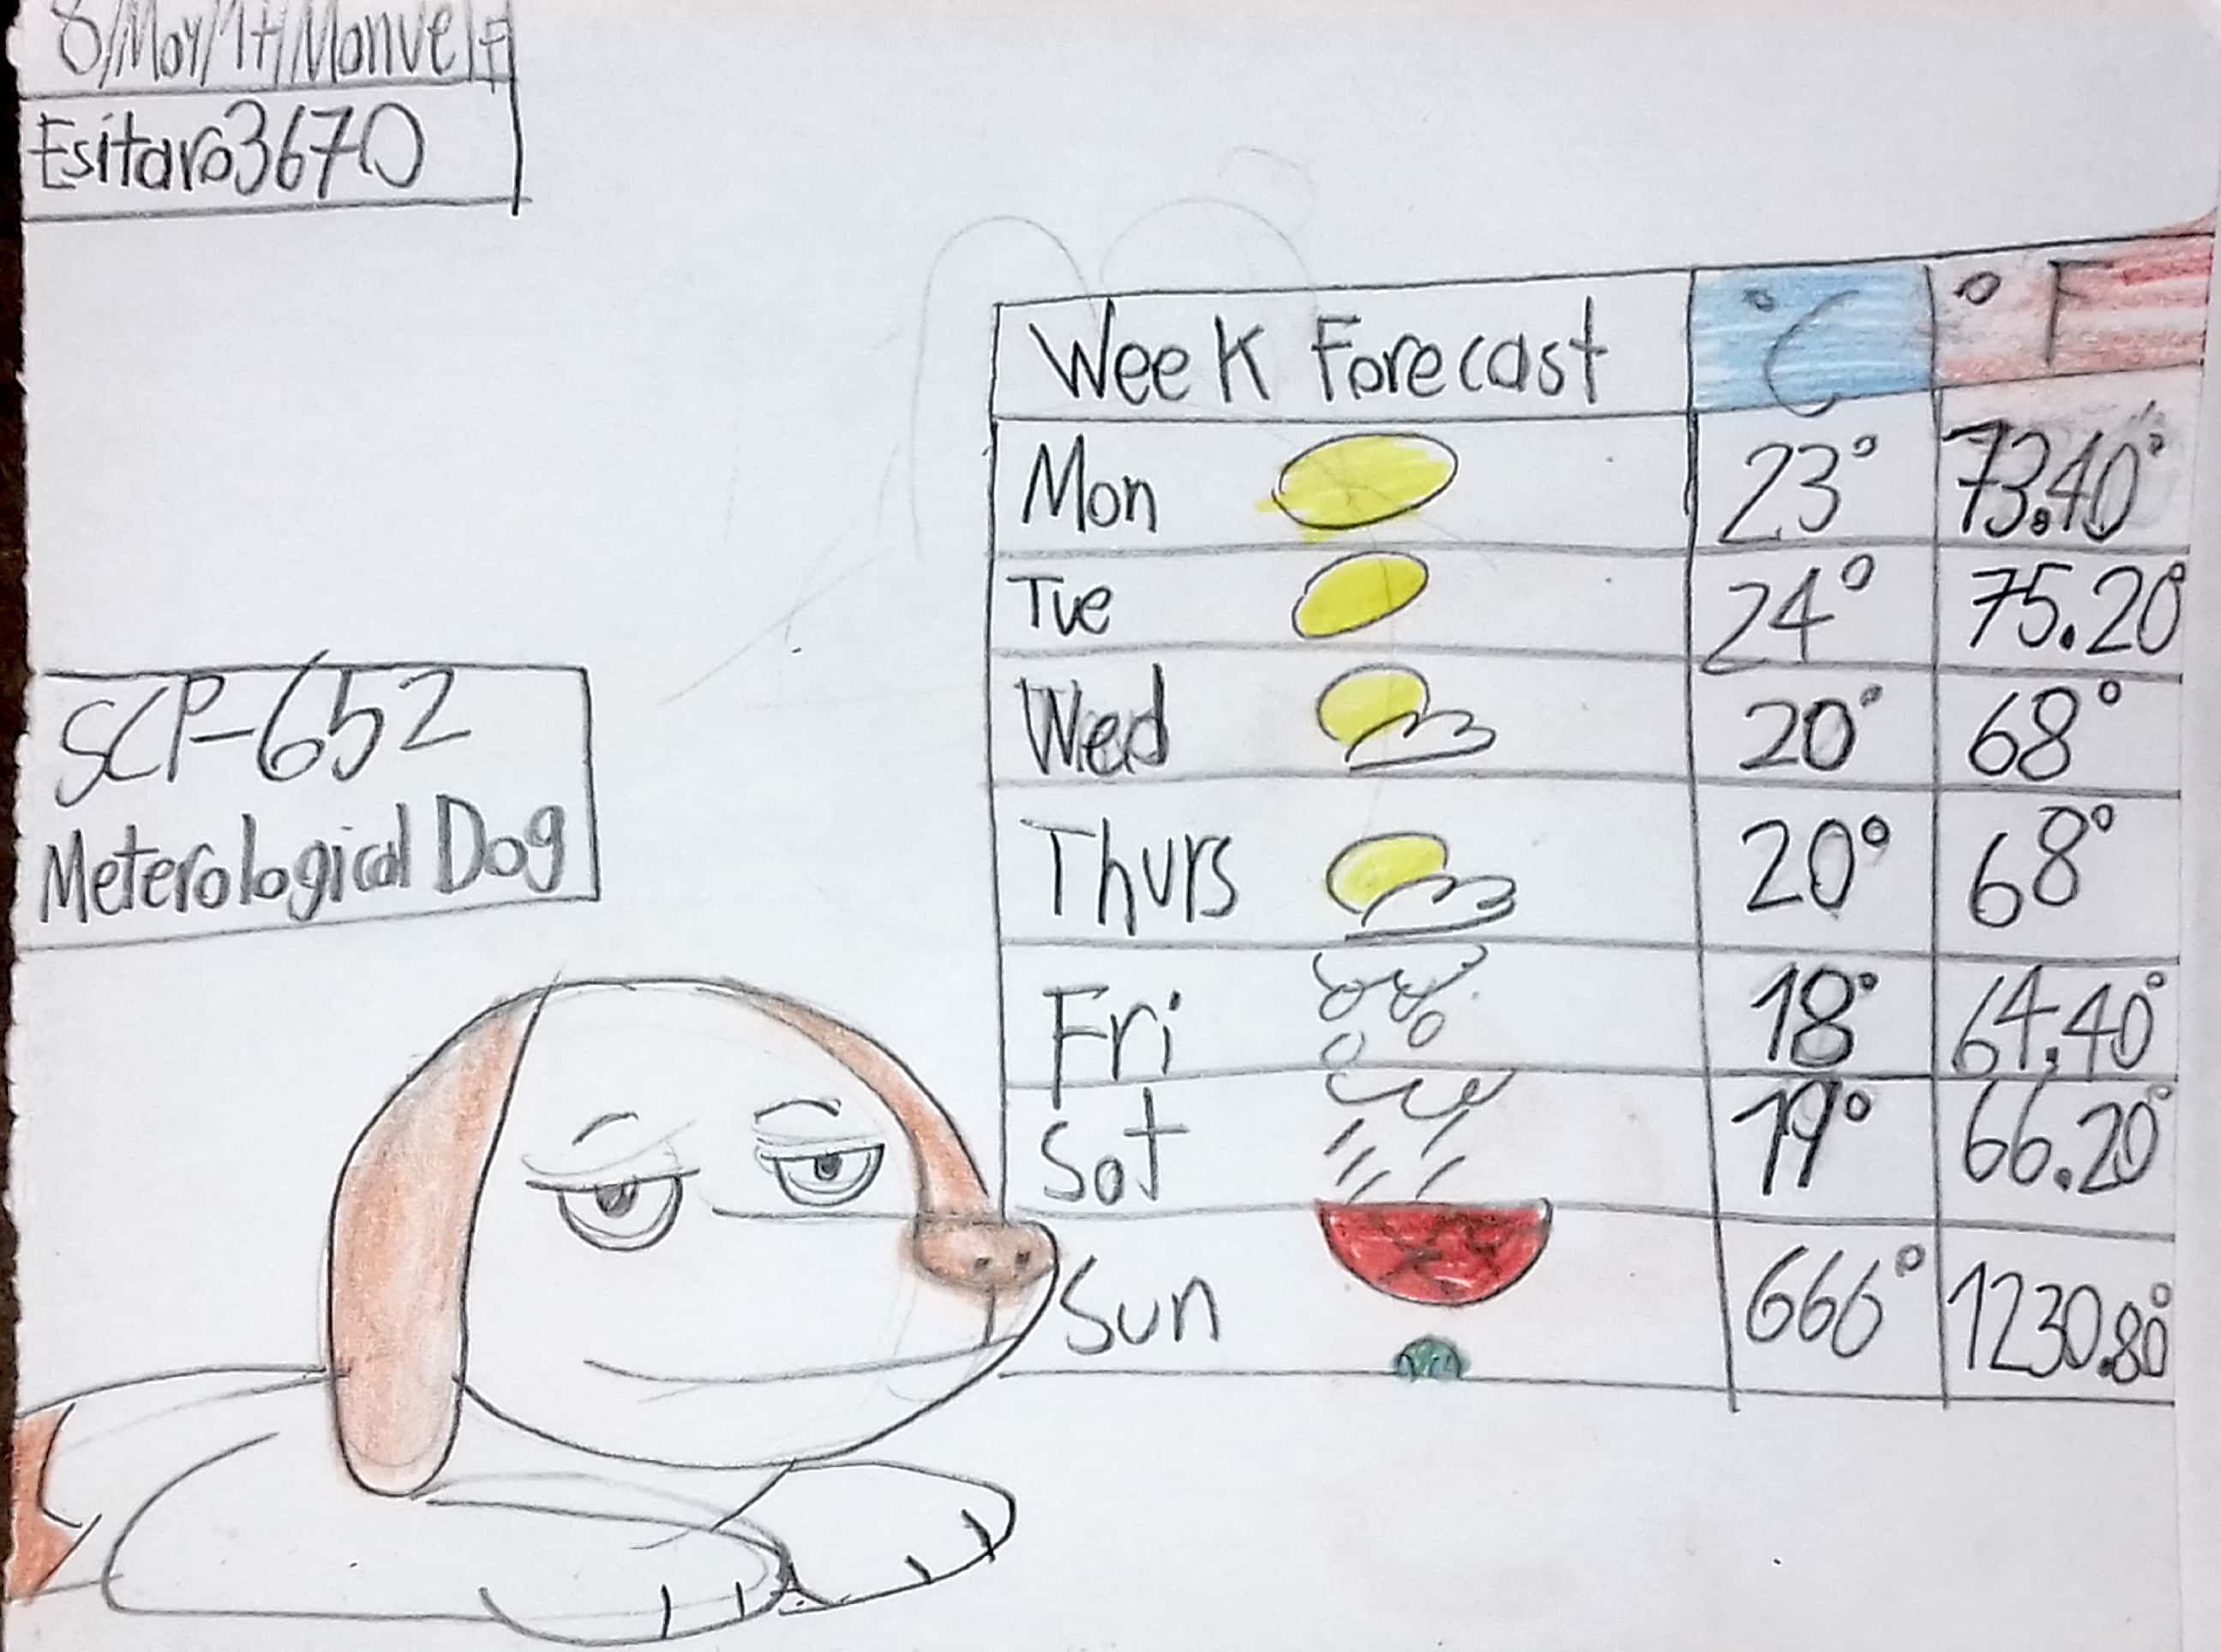 8/May/17/Manuel F
Esitaro3670
SCP-652
Meterological Dog
Week Forecast °C °F
Mon 23° 73.40°
Tue 24° 75.20°
Wed 20° 68°
Thurs 20° 68°
Fri 18° 64.40°
Sat 19° 66.20°
Sun 666° 1230.80°